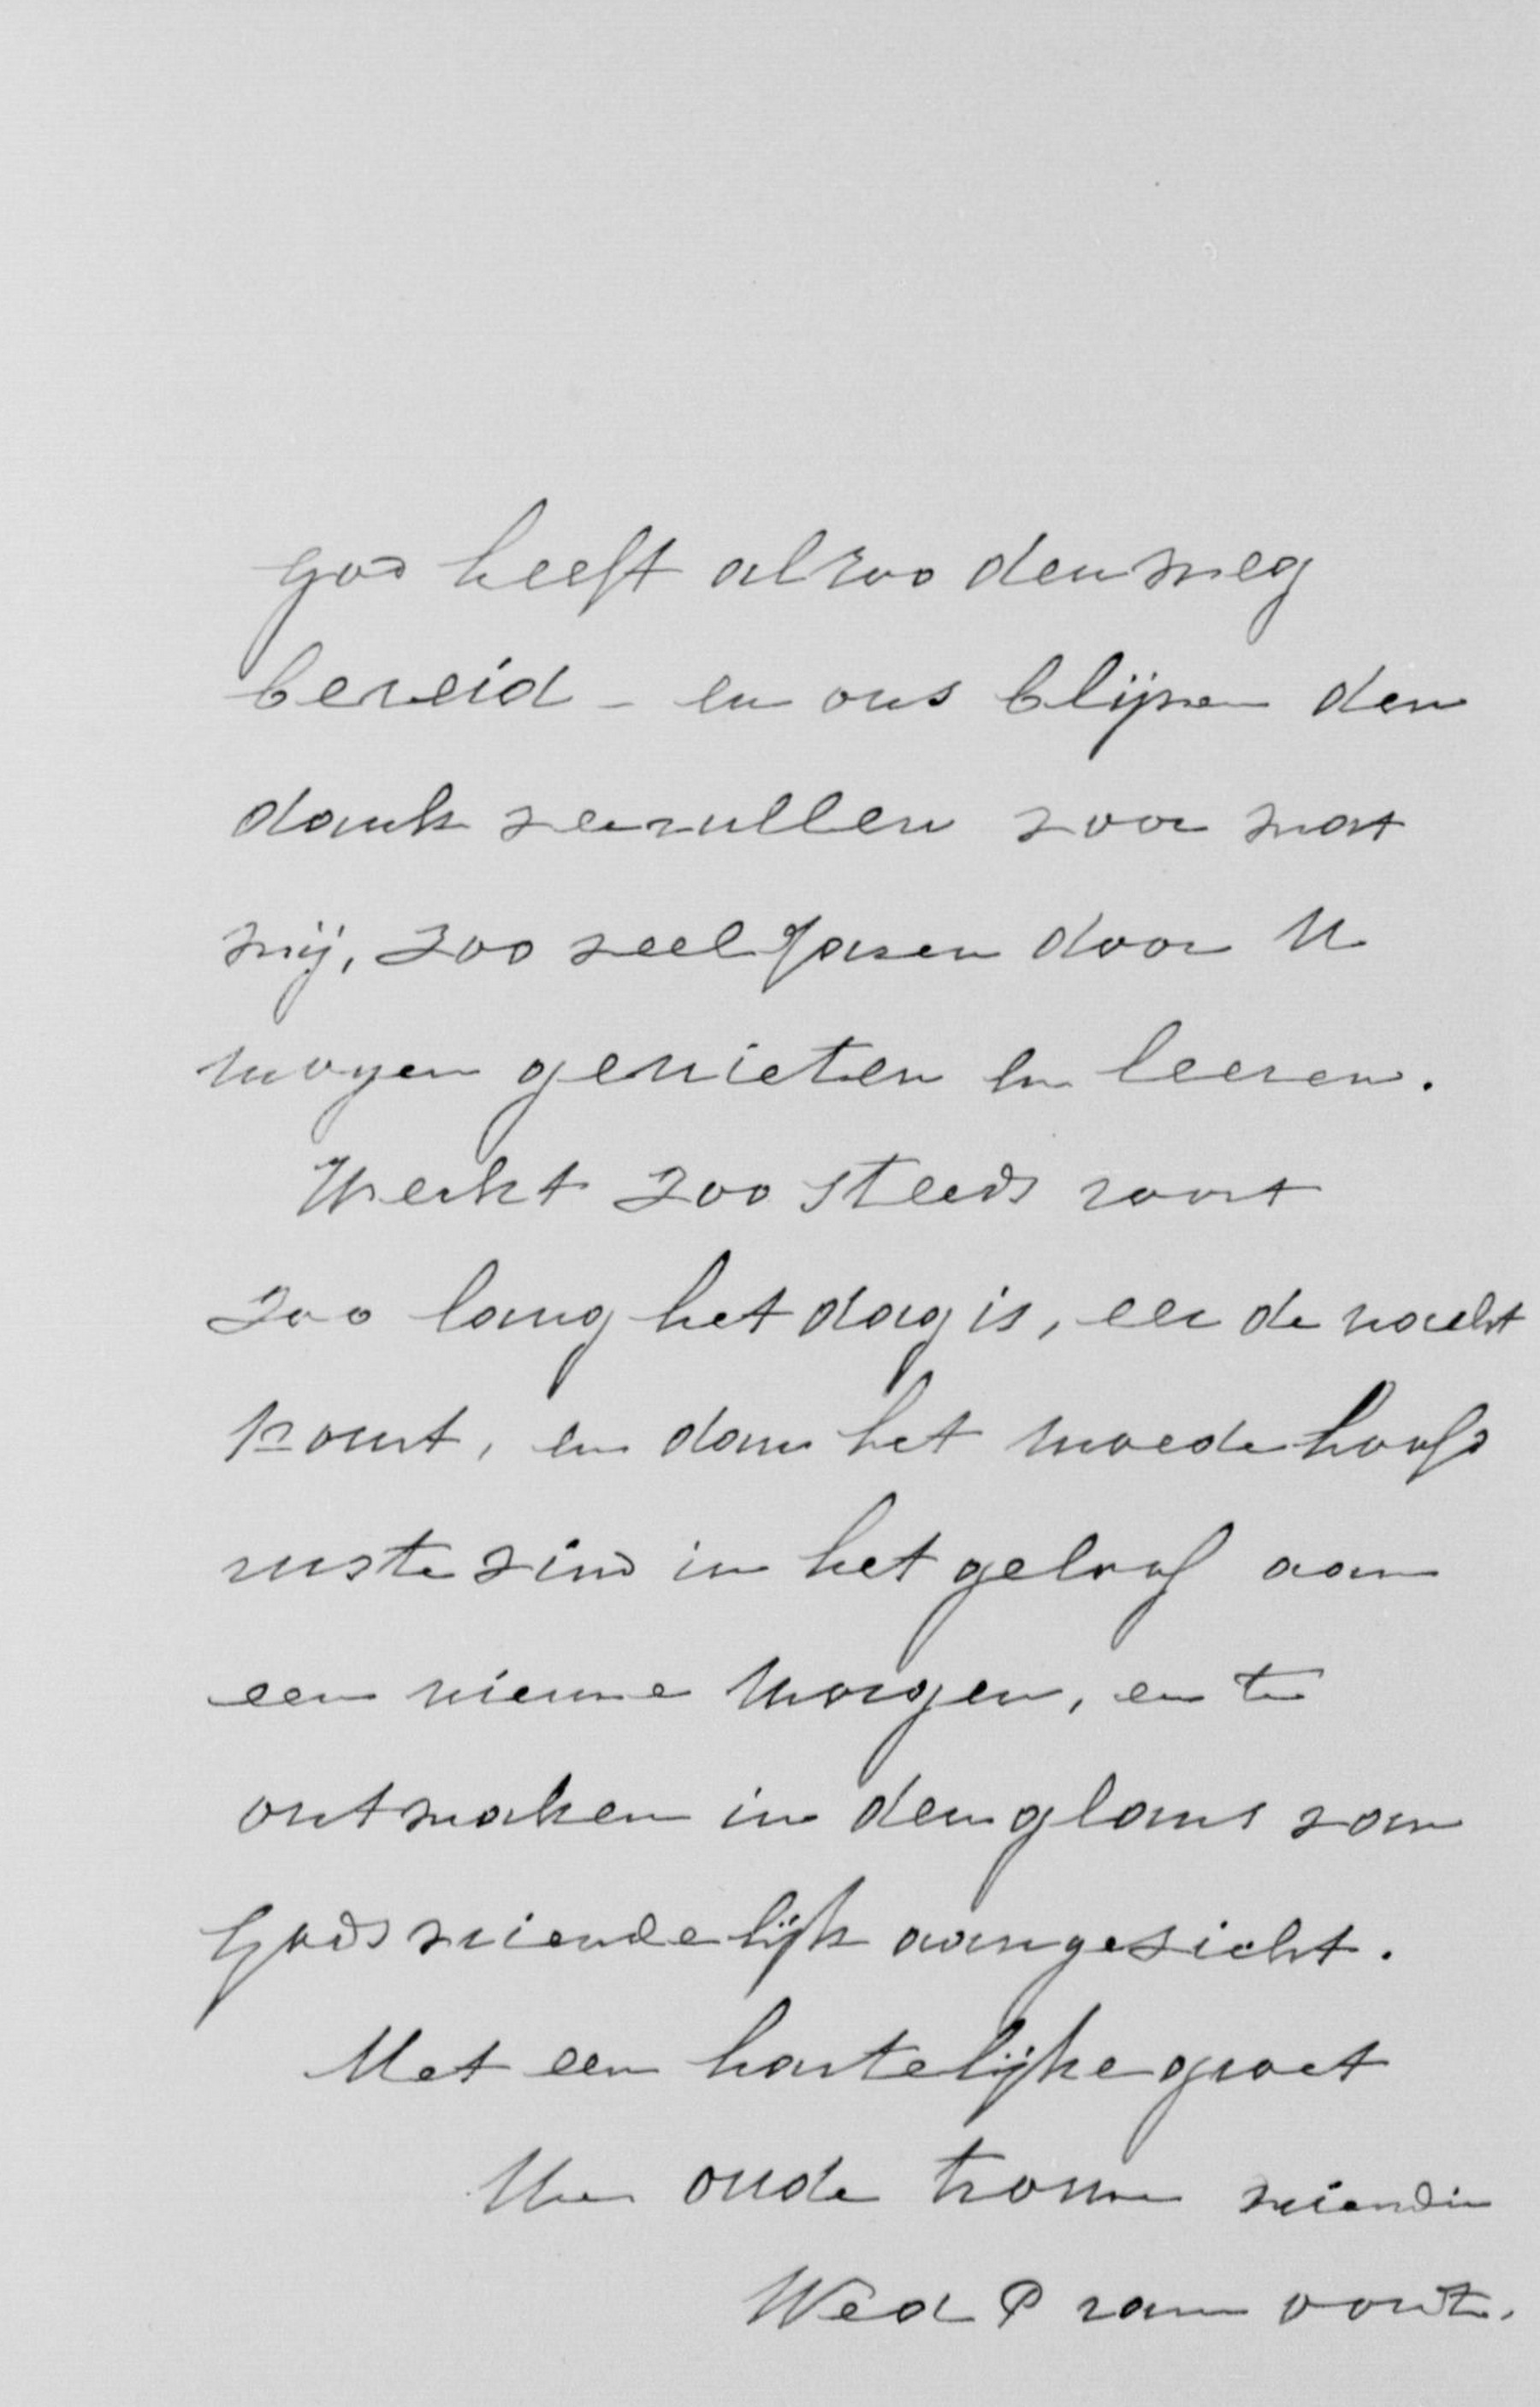 God heeft alzoo den weg
bereid - en ons blijve den
dank vervullen voor wat
wij, zoo veel jaren door U
mogen genieten en leeren.
Werkt zoo steeds voort
Zoo lang het dag is, eer de nacht
komt, en dan het moede hoofd
ruste vind in het geloof aan
een nieuwe morgen, en te
ontwaken in den glans van
Gods vriendelijk aangezicht.
Met een hartelijke groet
Uw oude trouwe vriendin
Wed P van